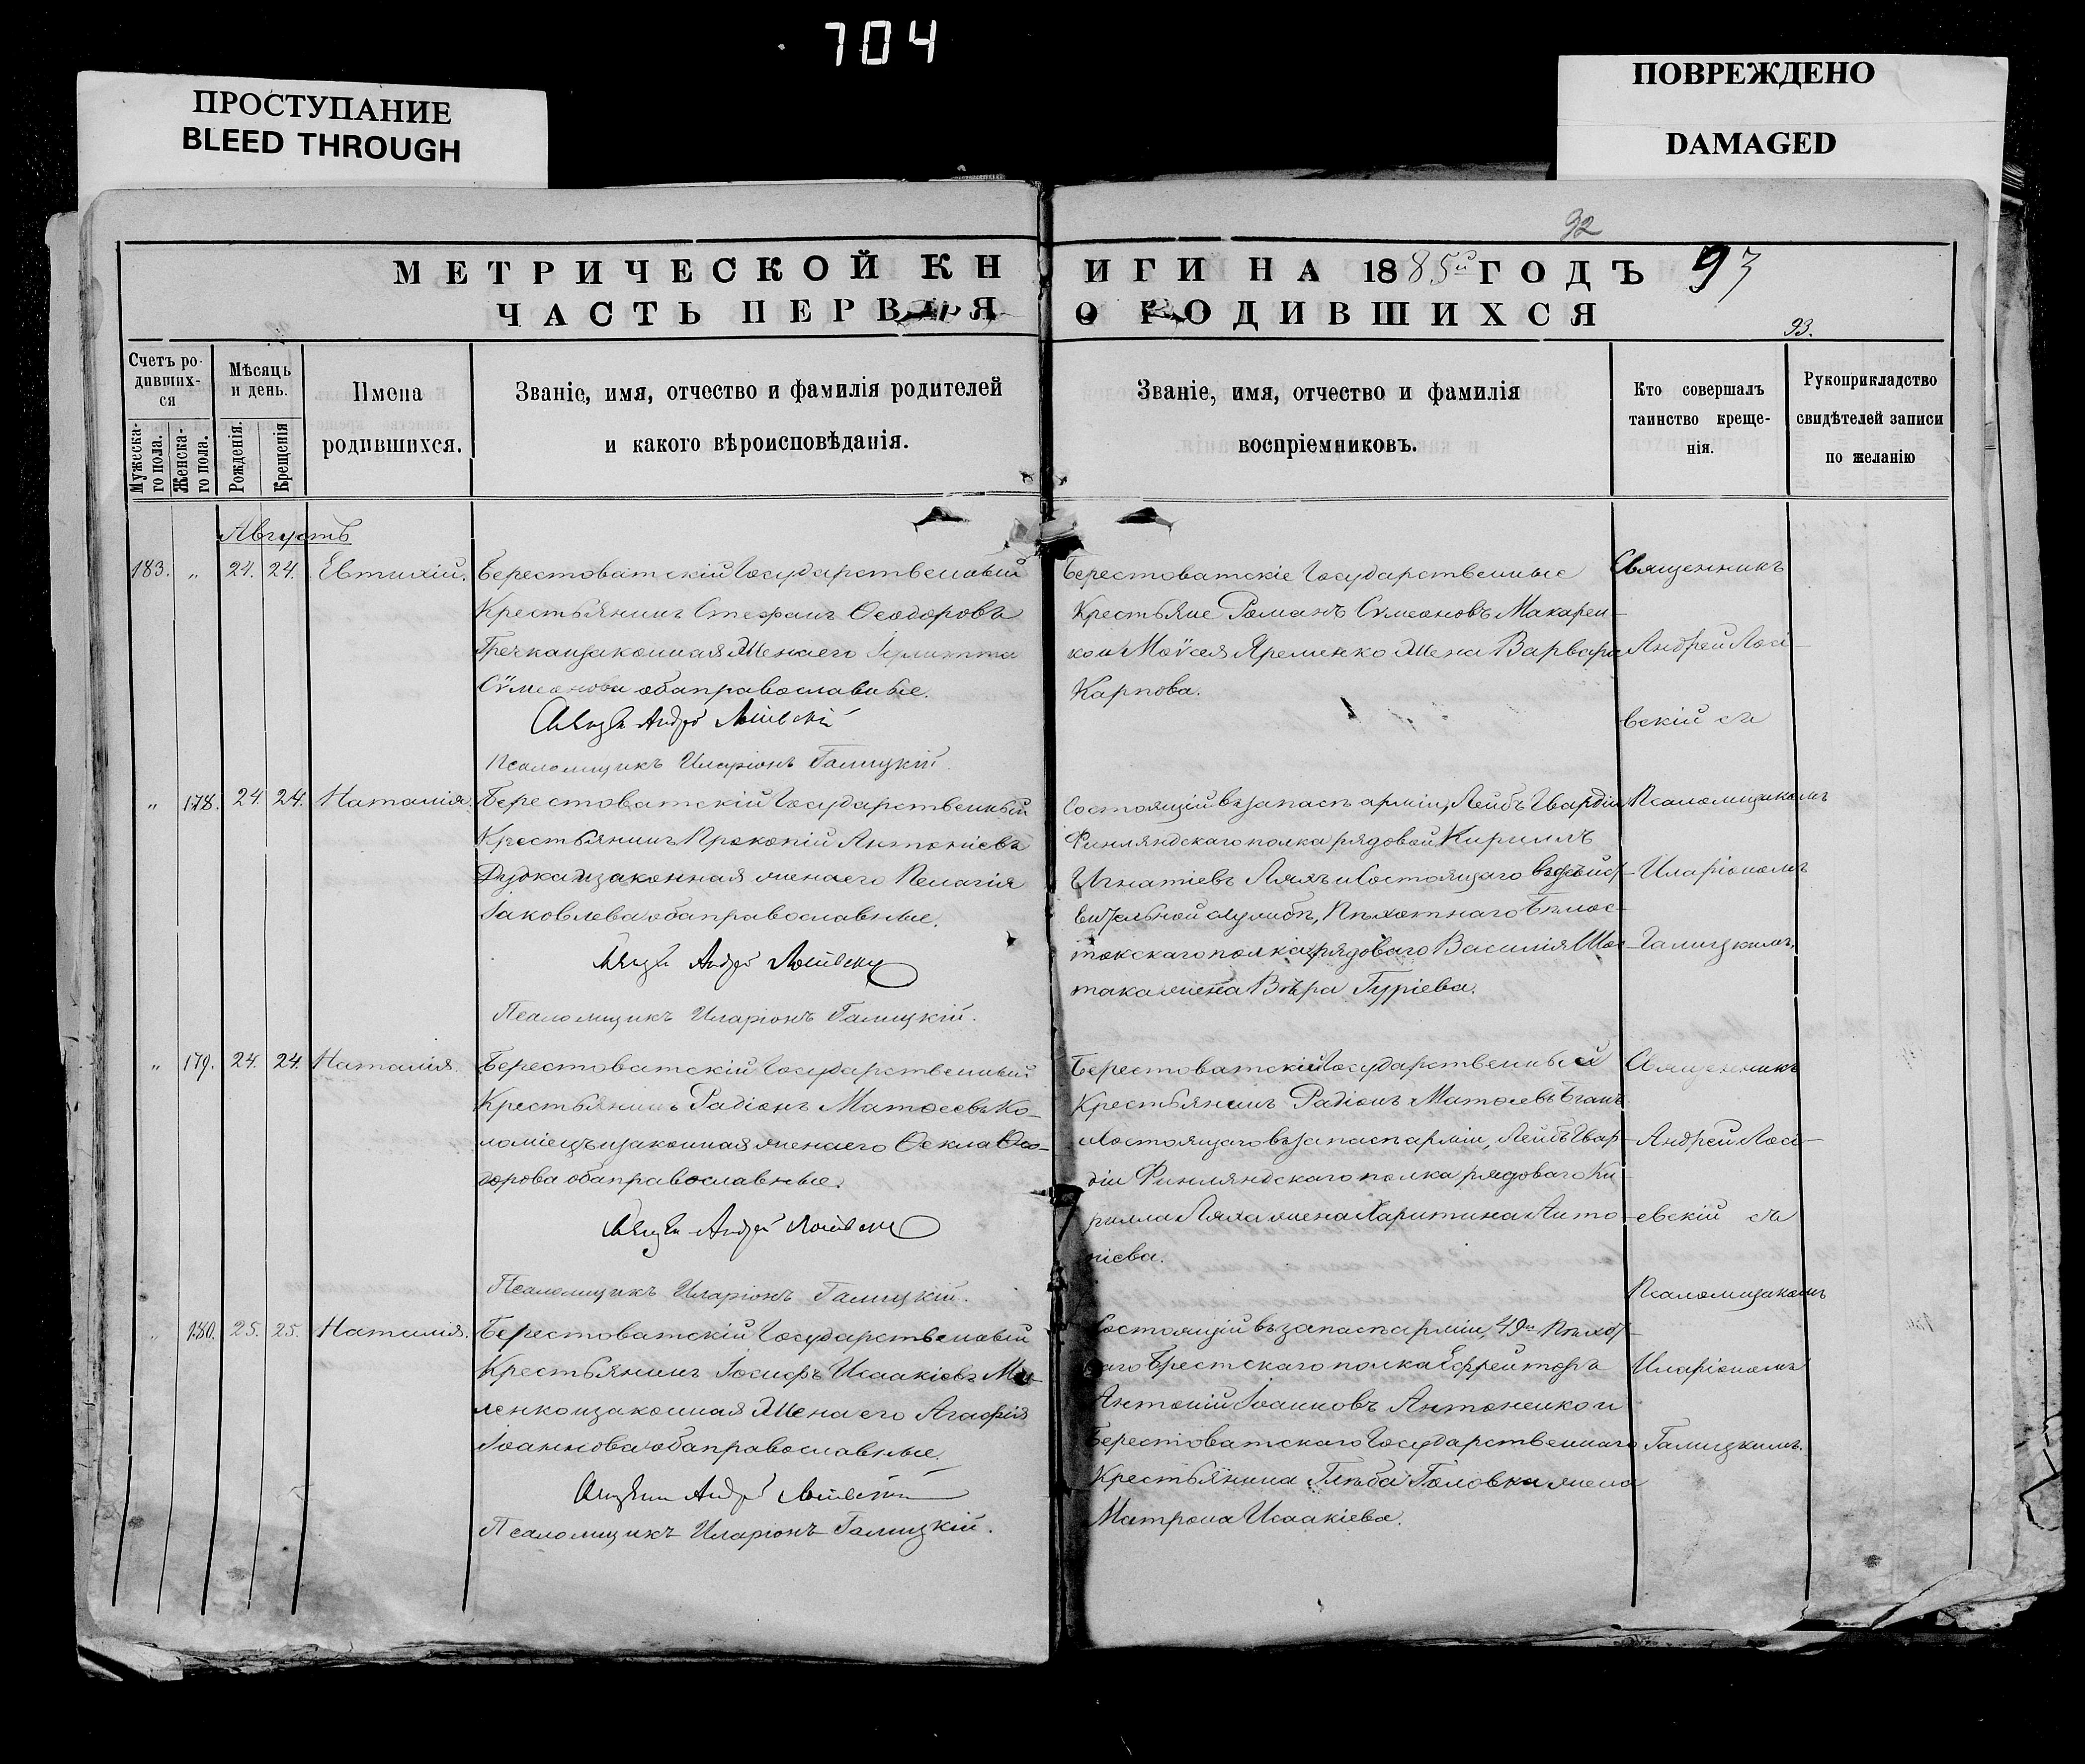 704
ПРОСТУПАНИЕ
BLEED THROUGH
ПОВРЕЖДЕНО
DAMAGED
92
МЕТРИЧЕСКОЙ КНИГИ НА 1885й ГОДЪ 97
ЧАСТЬ ПЕРВАЯ О РОДИВШИХСЯ
93.
Счетъ родившихся
Мужеска-го пола.
Женска-го пола.
Мѣсяцъ и день.
Рожденія.
Крещенія
Имена родившихся.
Званіе, имя, отчество и фамилія родителей
и какого вѣроисповѣданія.
Званіе, имя, отчество и фамилія
воспріемниковъ.
Кто совершалъ
таинство креще-
нія.
Рукоприкладство
свидѣтелей записи
по желанію
Августъ
183. „ 24. 24. Евтихій.
Берестоватскій Государственный
Крестьянинъ Стефанъ Ѳеодоровъ
Гречка и законная жена его
Сѵмеонова оба православные.
Псаломщикъ Иларіонъ Галицкій
Берестоватскіе Государственные
Крестьяне Романъ Сѵмеоновъ Макарен-
ко и Моѵсея Яременко жена Варвара
Карпова.
Священникъ
Андрей Лосі-
евскій съ
„ 178. 24. 24. Наталія.
Берестоватскій Государственный
Крестьянинъ Прокопій Антоніевъ
Дудка и законная жена его Пелагія
Іаковлева оба православные.
Псаломщикъ Иларіонъ Галицкій.
Состоящій въ запасѣ арміи, Лейбъ Гвардіи
Финляндскаго полка рядовой Кириллъ
Игнатіевъ Ляхъ и Состоящаго въ дѣйст-
вительной службѣ, Пѣхотнаго Бѣлос-
токскаго полка рядоваго Василія Шос-
така жена Вѣра Гуріева.
Псаломщикомъ
Иларіономъ
Галицкимъ.
„ 179. 24. 24. Наталія.
Берестоватскій Государственный
Крестьянинъ Радіонъ Матѳеевъ Ко-
ломіецъ и законная жена его Ѳекла Ѳео-
дорова оба православные.
Псаломщикъ Иларіонъ Галицкій.
Берестоватскій Государственный
Крестьянинъ Радіонъ Матѳеевъ
и Состоящаго въ запасѣ арміи, Лейбъ Гвар-
діи Финляндскаго полка рядоваго Ки-
рилла Ляха жена Харитина Анто-
ніева.
Священникъ
Андрей Лосі-
евскій съ
Псаломщикомъ
„ 180. 25. 25. Наталія.
Берестоватскій Государственный
Крестьянинъ Іосифъ Исаакіевъ
и законная жена его Агафія
Іоаннова оба православные.
Псаломщикъ Иларіонъ Галицкій.
Состоящій въ запасѣ арміи, 49го Пѣхот-
наго Брестскаго полка Ефрейторъ
Антоній Іоанновъ Антоненко и
Берестоватскаго Государственнаго
Крестьянина Глѣба Головка жена
Матрона Исаакіева.
Иларіономъ
Галицкимъ.